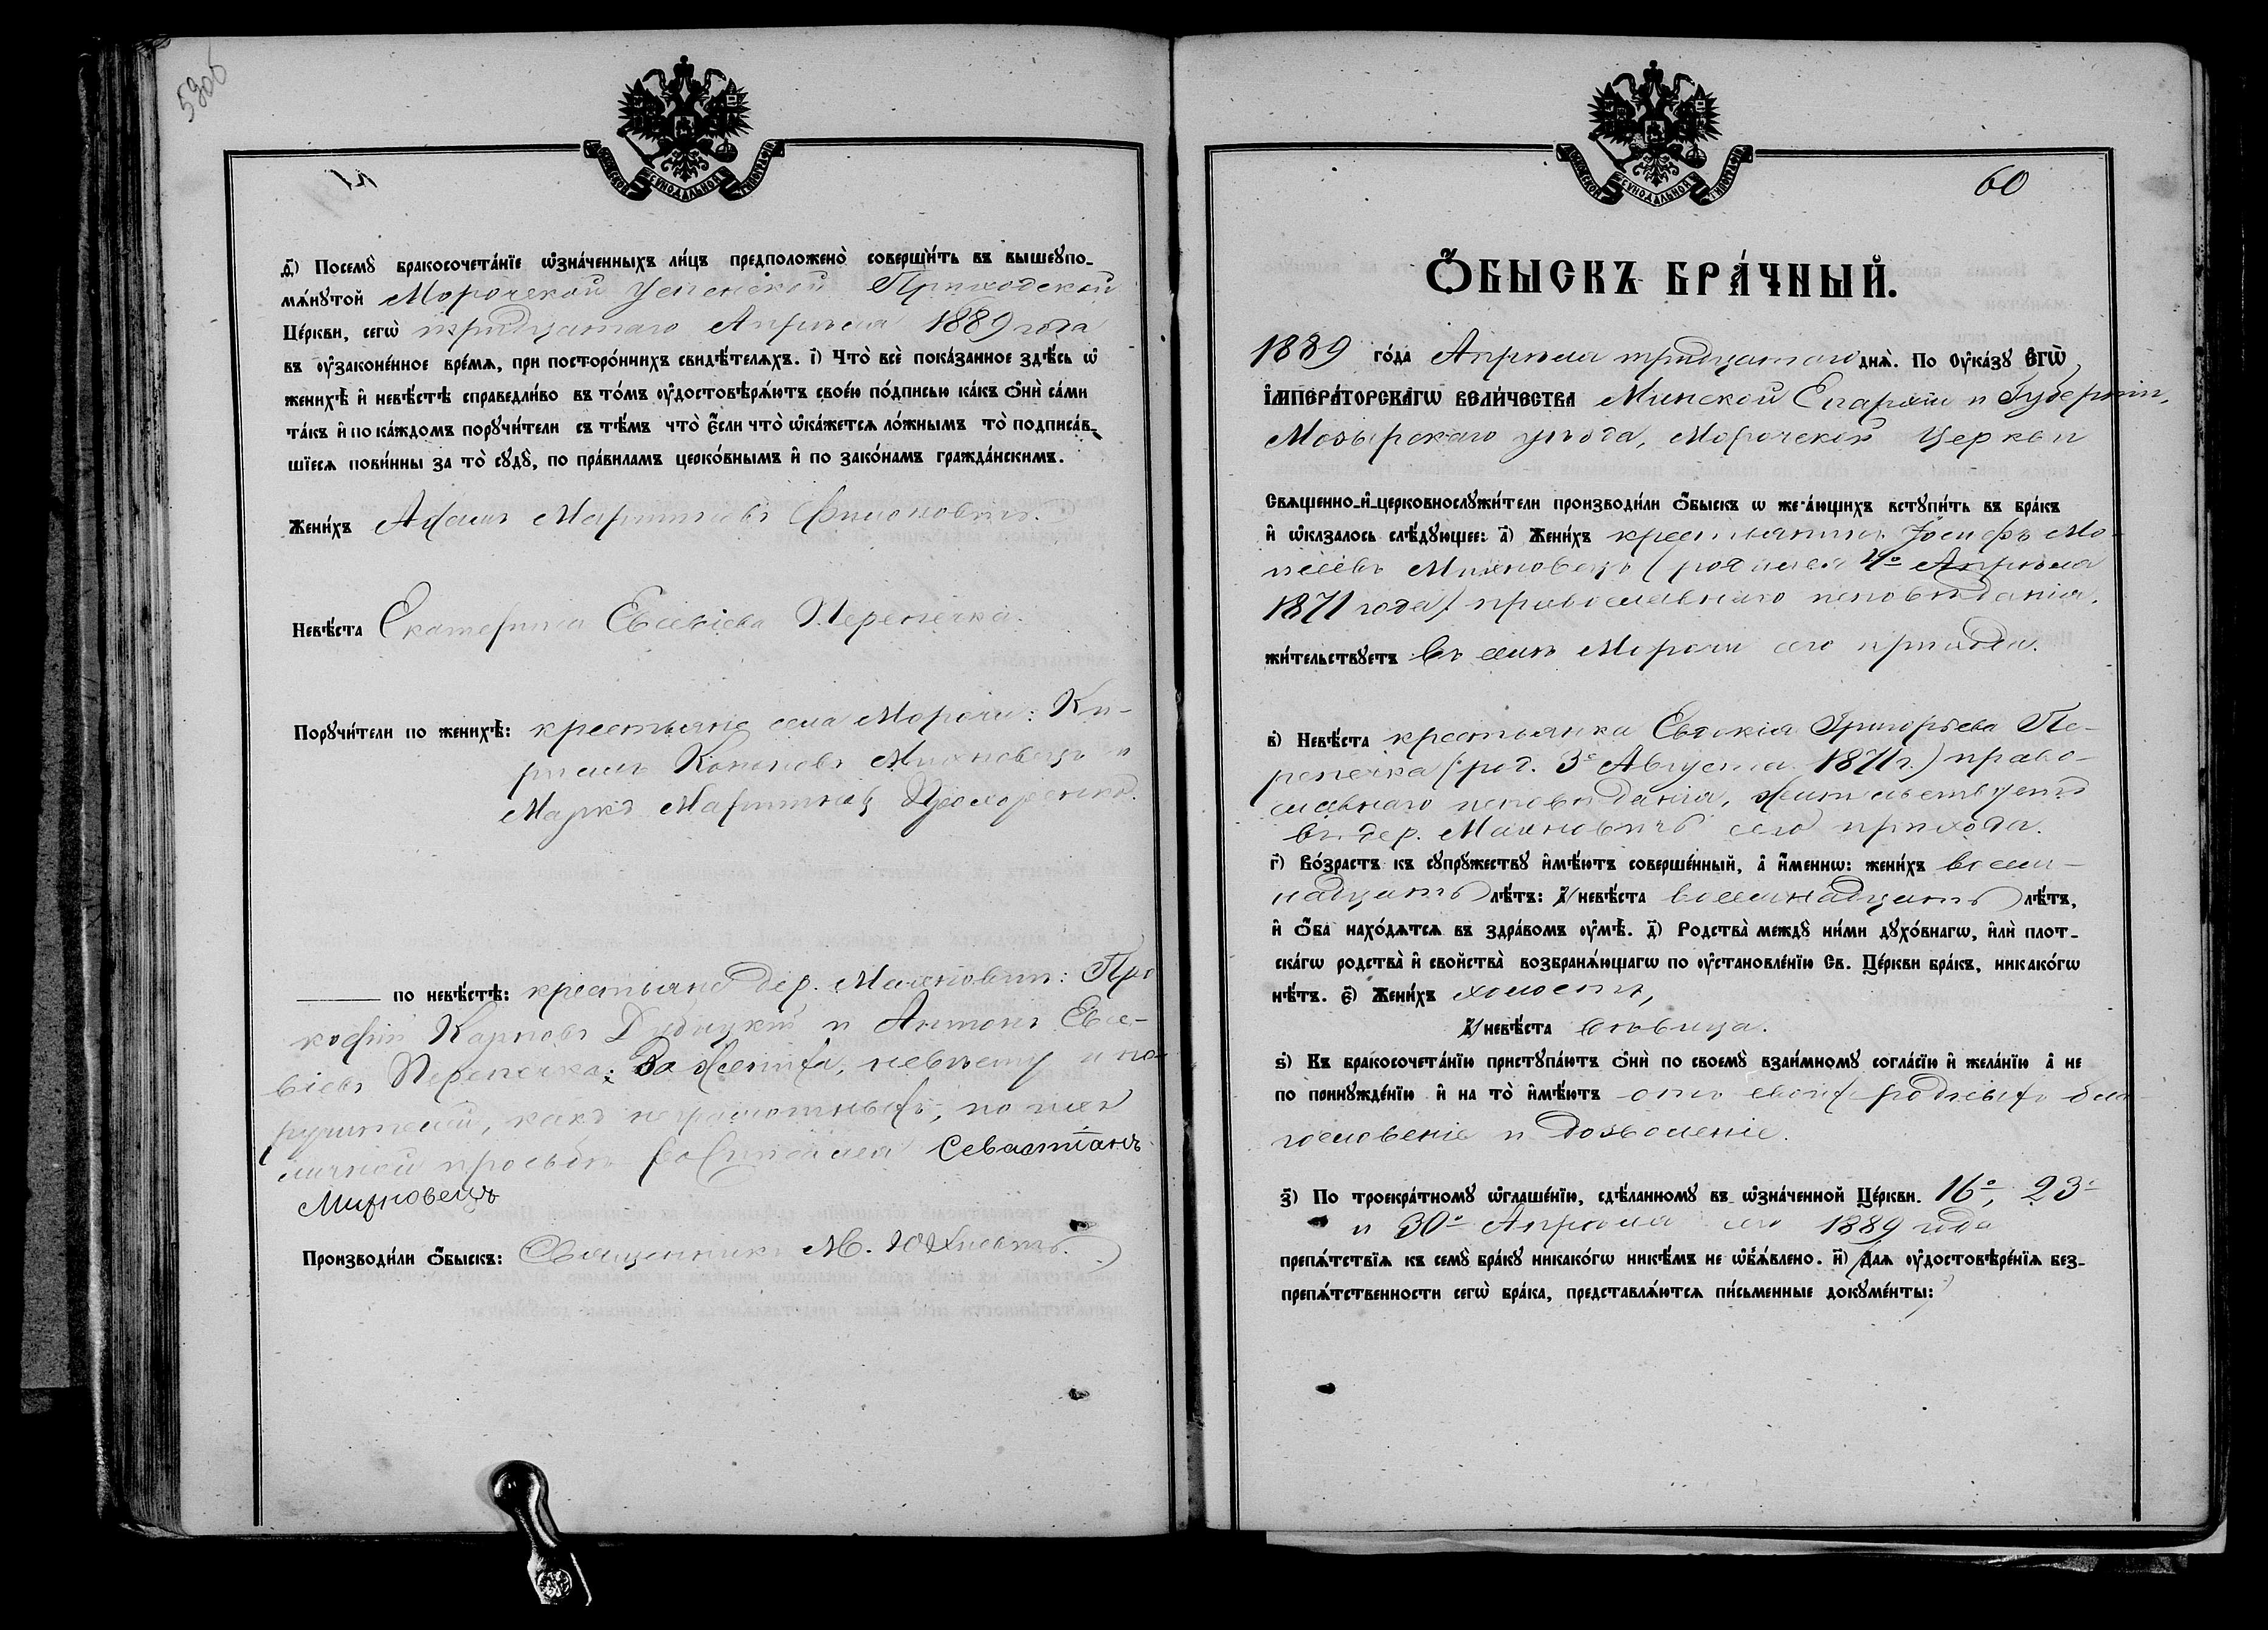 59об
МОСКОВСКОЙ СѴНОДАЛЬНОЙ ТИПОГРАФІИ
ѳ҃) Посемꙋ̀ бракосочета́нїе ѡ҆зна́ченныхъ ли́цъ предположено̀ соверши́ть въ вышеꙋпо-
мѧ́нꙋтой Морочской Успенской Приходской
Це́ркви, сегѡ̀ тридцатаго Апрѣля 1889 года
въ ᲂу҆законе́нное вре́мѧ, при посторо́ннихъ свидѣ́телѧхъ. і҃) Что̀ всѐ пока́занное здѣ́сь ѡ҆
женихѣ̀ и҆ невѣ́стѣ справедли́во въ то́мъ ᲂу҆достовѣрѧ́ютъ свое́ю по́дписью ка́къ ѻ҆нѝ са́ми
та́къ и҆ по ка́ждомъ порꙋчи́тели съ тѣ́мъ что̀ є҆́сли что̀ ѡ҆ка́жетсѧ ло́жнымъ то̀ подписа́в-
шїесѧ пови́нны за то̀ сꙋдꙋ̀, по пра́виламъ церко́внымъ и҆ по зако́намъ гражда́нскимъ.
Жени́хъ Адамъ Мартиновъ Филоновичъ.
Невѣ́ста Екатерина Евсевіева Перепечка.
Порꙋчи́тели по женихѣ̀: крестьяне села Морочи: Ки-
риллъ Кононовъ Михновецъ и
Марко Мартиновъ
по невѣ́стѣ: крестьяне дер. Махновичъ: Про
кофій Карповъ Дубицкій и Антонъ Евсе-
віевъ Перепечка: За жениха, невѣсту и по-
ручителей, какъ неграмотныхъ, по ихъ
личной просьбѣ росписался Севастіанъ
Михновецъ
Производи́ли ѻ҆́быскъ: Священникъ М. Юхневичъ.
МОСКОВСКОЙ СѴНОДАЛЬНОЙ ТИПОГРАФІИ
60
Ѻ҆БЫСКЪ БРА́ЧНЫЙ.
1889 го́да Апрѣля тридцатаго днѧ̀. По Оука́зꙋ ЄГѠ̀
І҆МПЕРА́ТОРСКАГѠ ВЕЛИ́ЧЕСТВА Минской Епархіи и Губерніи,
Мозырскаго уѣзда, Морочской Церкви
Свѧщенно-и҆-церковнослꙋжи́тели производи́ли ѻ҆́быскъ ѡ жела́ющихъ встꙋпи́ть въ бра́къ
и҆ ѡ҆казалось слѣ́дꙋющее: а҃) Жени́хъ крестьянинъ Іосифъ Мо-
исеевъ Михновецъ (родился 4го Апрѣля
1871 года) православнаго исповѣданія,
жи́тельствꙋетъ въ селѣ Морочи сего прихода.
в҃) Невѣ́ста крестьянка Евдокія Григорьева Пе-
репечка (род. 3го Августа 1871 г.) право-
славнаго исповѣданія, жительствуетъ
въ дер. Махновичъ сего прихода.
г҃) Во́зрастъ къ сꙋпрꙋ́жествꙋ и҆мѣ́ютъ соверше́нный, а҆̀ и҆́меннѡ: жени́хъ восем-
надцать лѣ́тъ: А҆ невѣ́ста восемнадцать лѣ́тъ,
и҆ ѻ҆́ба нахо́дѧтсѧ въ здра́вомъ ᲂу҆мѣ̀. д҃) Родства̀ междꙋ̀ ни́ми дꙋхо́внагѡ, и҆лѝ плот-
ска́гѡ родства̀ и҆ сво́йства возбранѧ́ющагѡ по ᲂу҆становле́нїю Св. Це́ркви бра́къ, никако́гѡ
нѣ́тъ. є҃) Жени́хъ холостъ,
А҆ невѣ́ста дѣвица.
ѕ҃) Къ бракосочета́нїю пристꙋпа́ютъ ѻ҆нѝ по своемꙋ̀ взаи́мномꙋ согла́сїю и҆ жела́нїю а҆ не
по принꙋжде́нїю и҆ на то̀ и҆мѣ́ютъ отъ своихъ родныхъ бла-
гословеніе и дозволеніе.
з҃) По троекра́тномꙋ ѡ҆глаше́нїю, сдѣ́ланномꙋ въ ѡ҆зна́ченной Це́ркви. 16го, 23го
и 30го Апрѣля сего 1889 года
препѧ́тствїѧ къ семꙋ̀ бра́кꙋ никако́гѡ никѣ́мъ не ѡ҆б̾ѧ́влено. и҃) Длѧ ᲂу҆достовѣре́нїѧ без-
препѧ́тственности сегѡ̀ бра́ка, представлѧ́ютсѧ пи́сьменные докꙋме́нты: